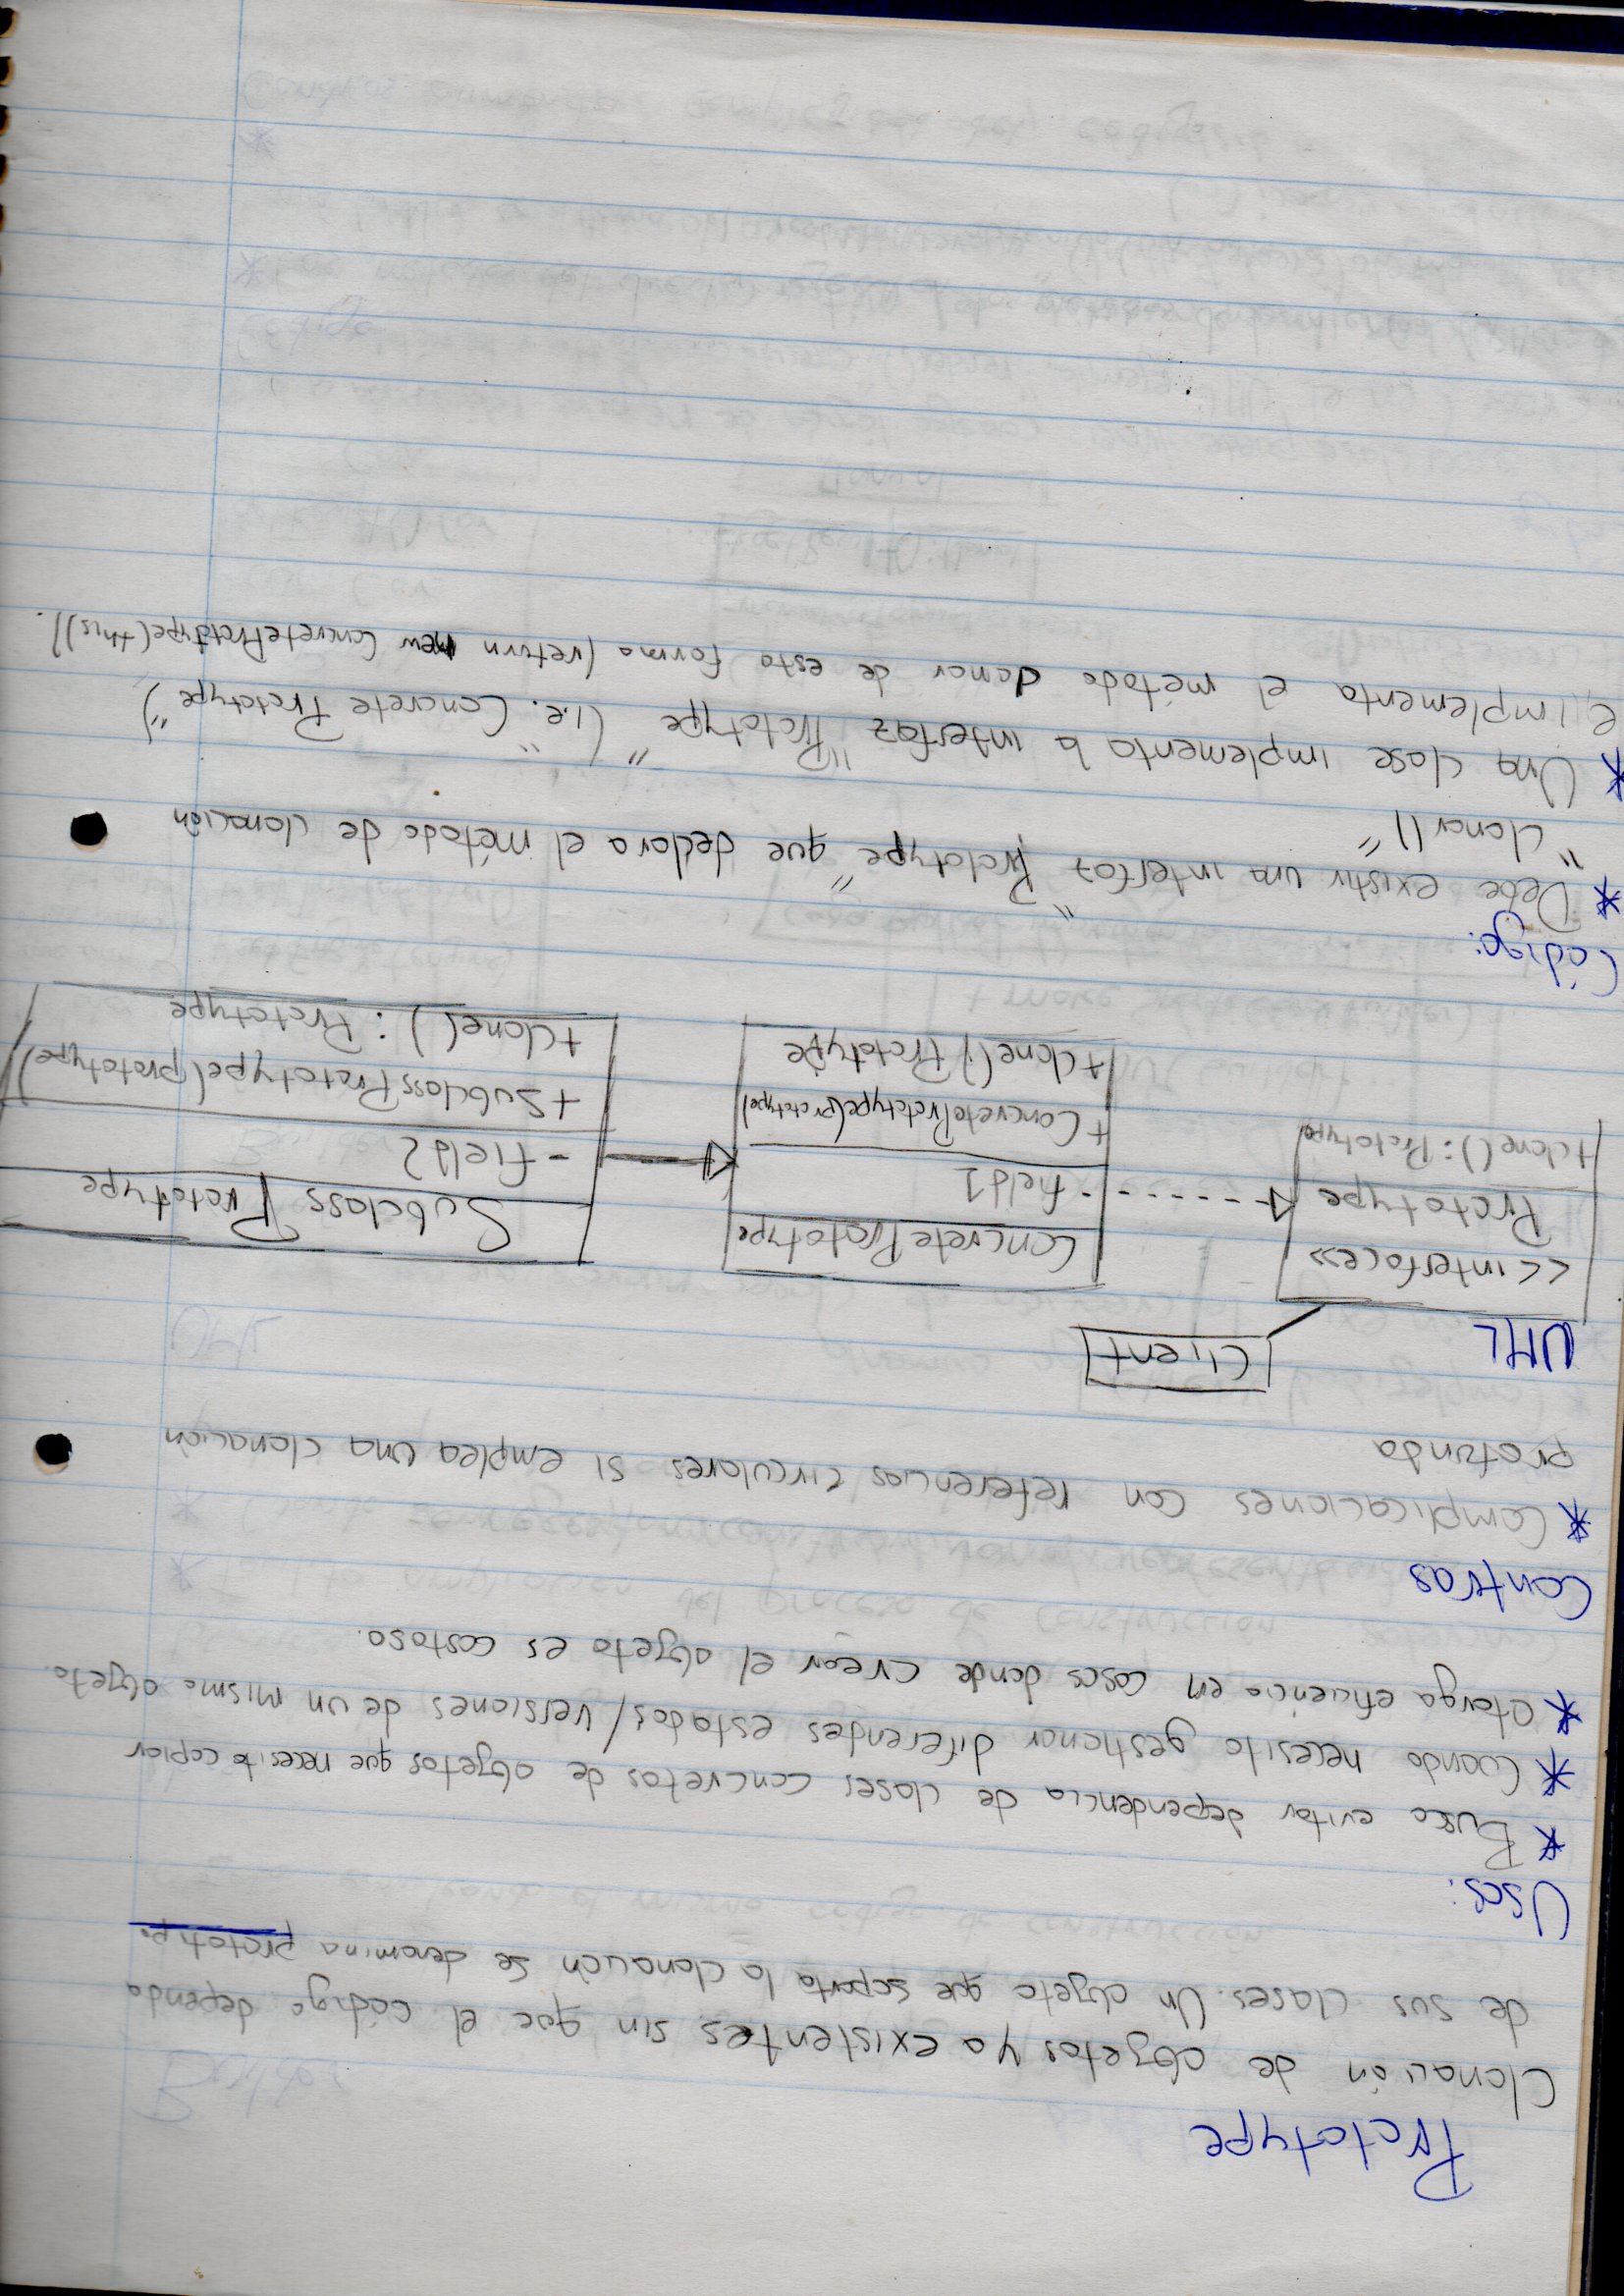 Prototype
Clonación de objetos ya existentes sin que el código dependa
de sus clases. Un objeto que soporta la clonación se denomina prototipo
Usos:
* Busco evitar dependencia de clases concretas de objetos que necesito copiar
* Cuando necesito gestionar diferentes estados/versiones de un mismo objeto.
* otorga eficiencia en casos donde crear el objeto es costoso.
Contras
* Complicaciones con referencias circulares si emplea una clonación
profunda
UML
Client
<<interface>>
Prototype
+clone(): Prototype
ConcretePrototype
- field1
+ ConcretePrototype(prototype)
+clone() Prototype
Subclass Prototype
- field2
+SubclassPrototype(prototype)
+clone(): Prototype
Código:
* Debe existir una interfaz "Prototype" que declara el método de clonación
"clonar()"
* Una clase implementa la interfaz "Prototype" (i.e. "Concrete Prototype")
e implementa el método clonar de esta forma (return new ConcretePrototype(this)).